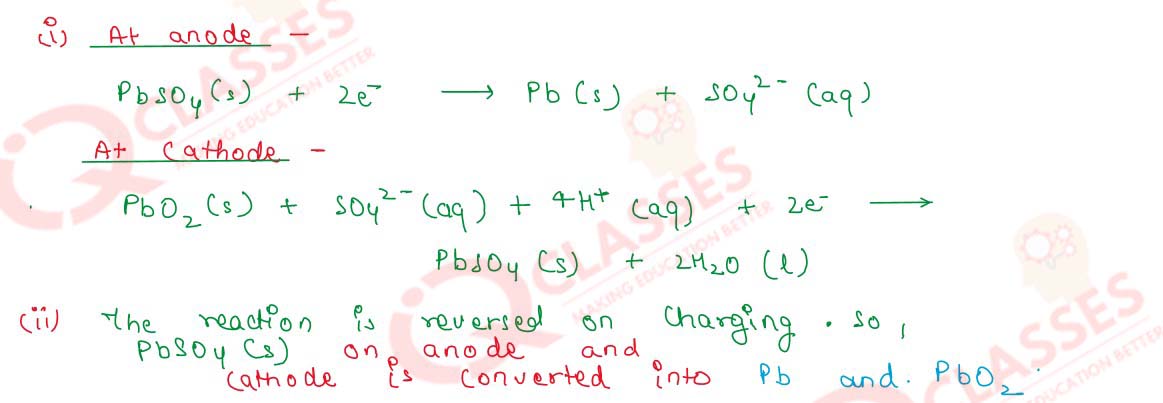 (i) At anode -
PbSO₄(s) + 2e⁻ ⟶ Pb(s) + SO₄²⁻(aq)
At Cathode -
PbO₂(s) + SO₄²⁻(aq) + 4H⁺(aq) + 2e⁻ ⟶
PbSO₄(s) + 2H₂O(l)
(ii) The reaction is reversed on charging. So,
PbSO₄(s) on anode and
cathode is converted into Pb and. PbO₂.
IQ CLASSES
MAKING EDUCATION BETTER
CLASSES
MAKING EDUCATION BETTER
CLASSES
EDUCATION BETTER